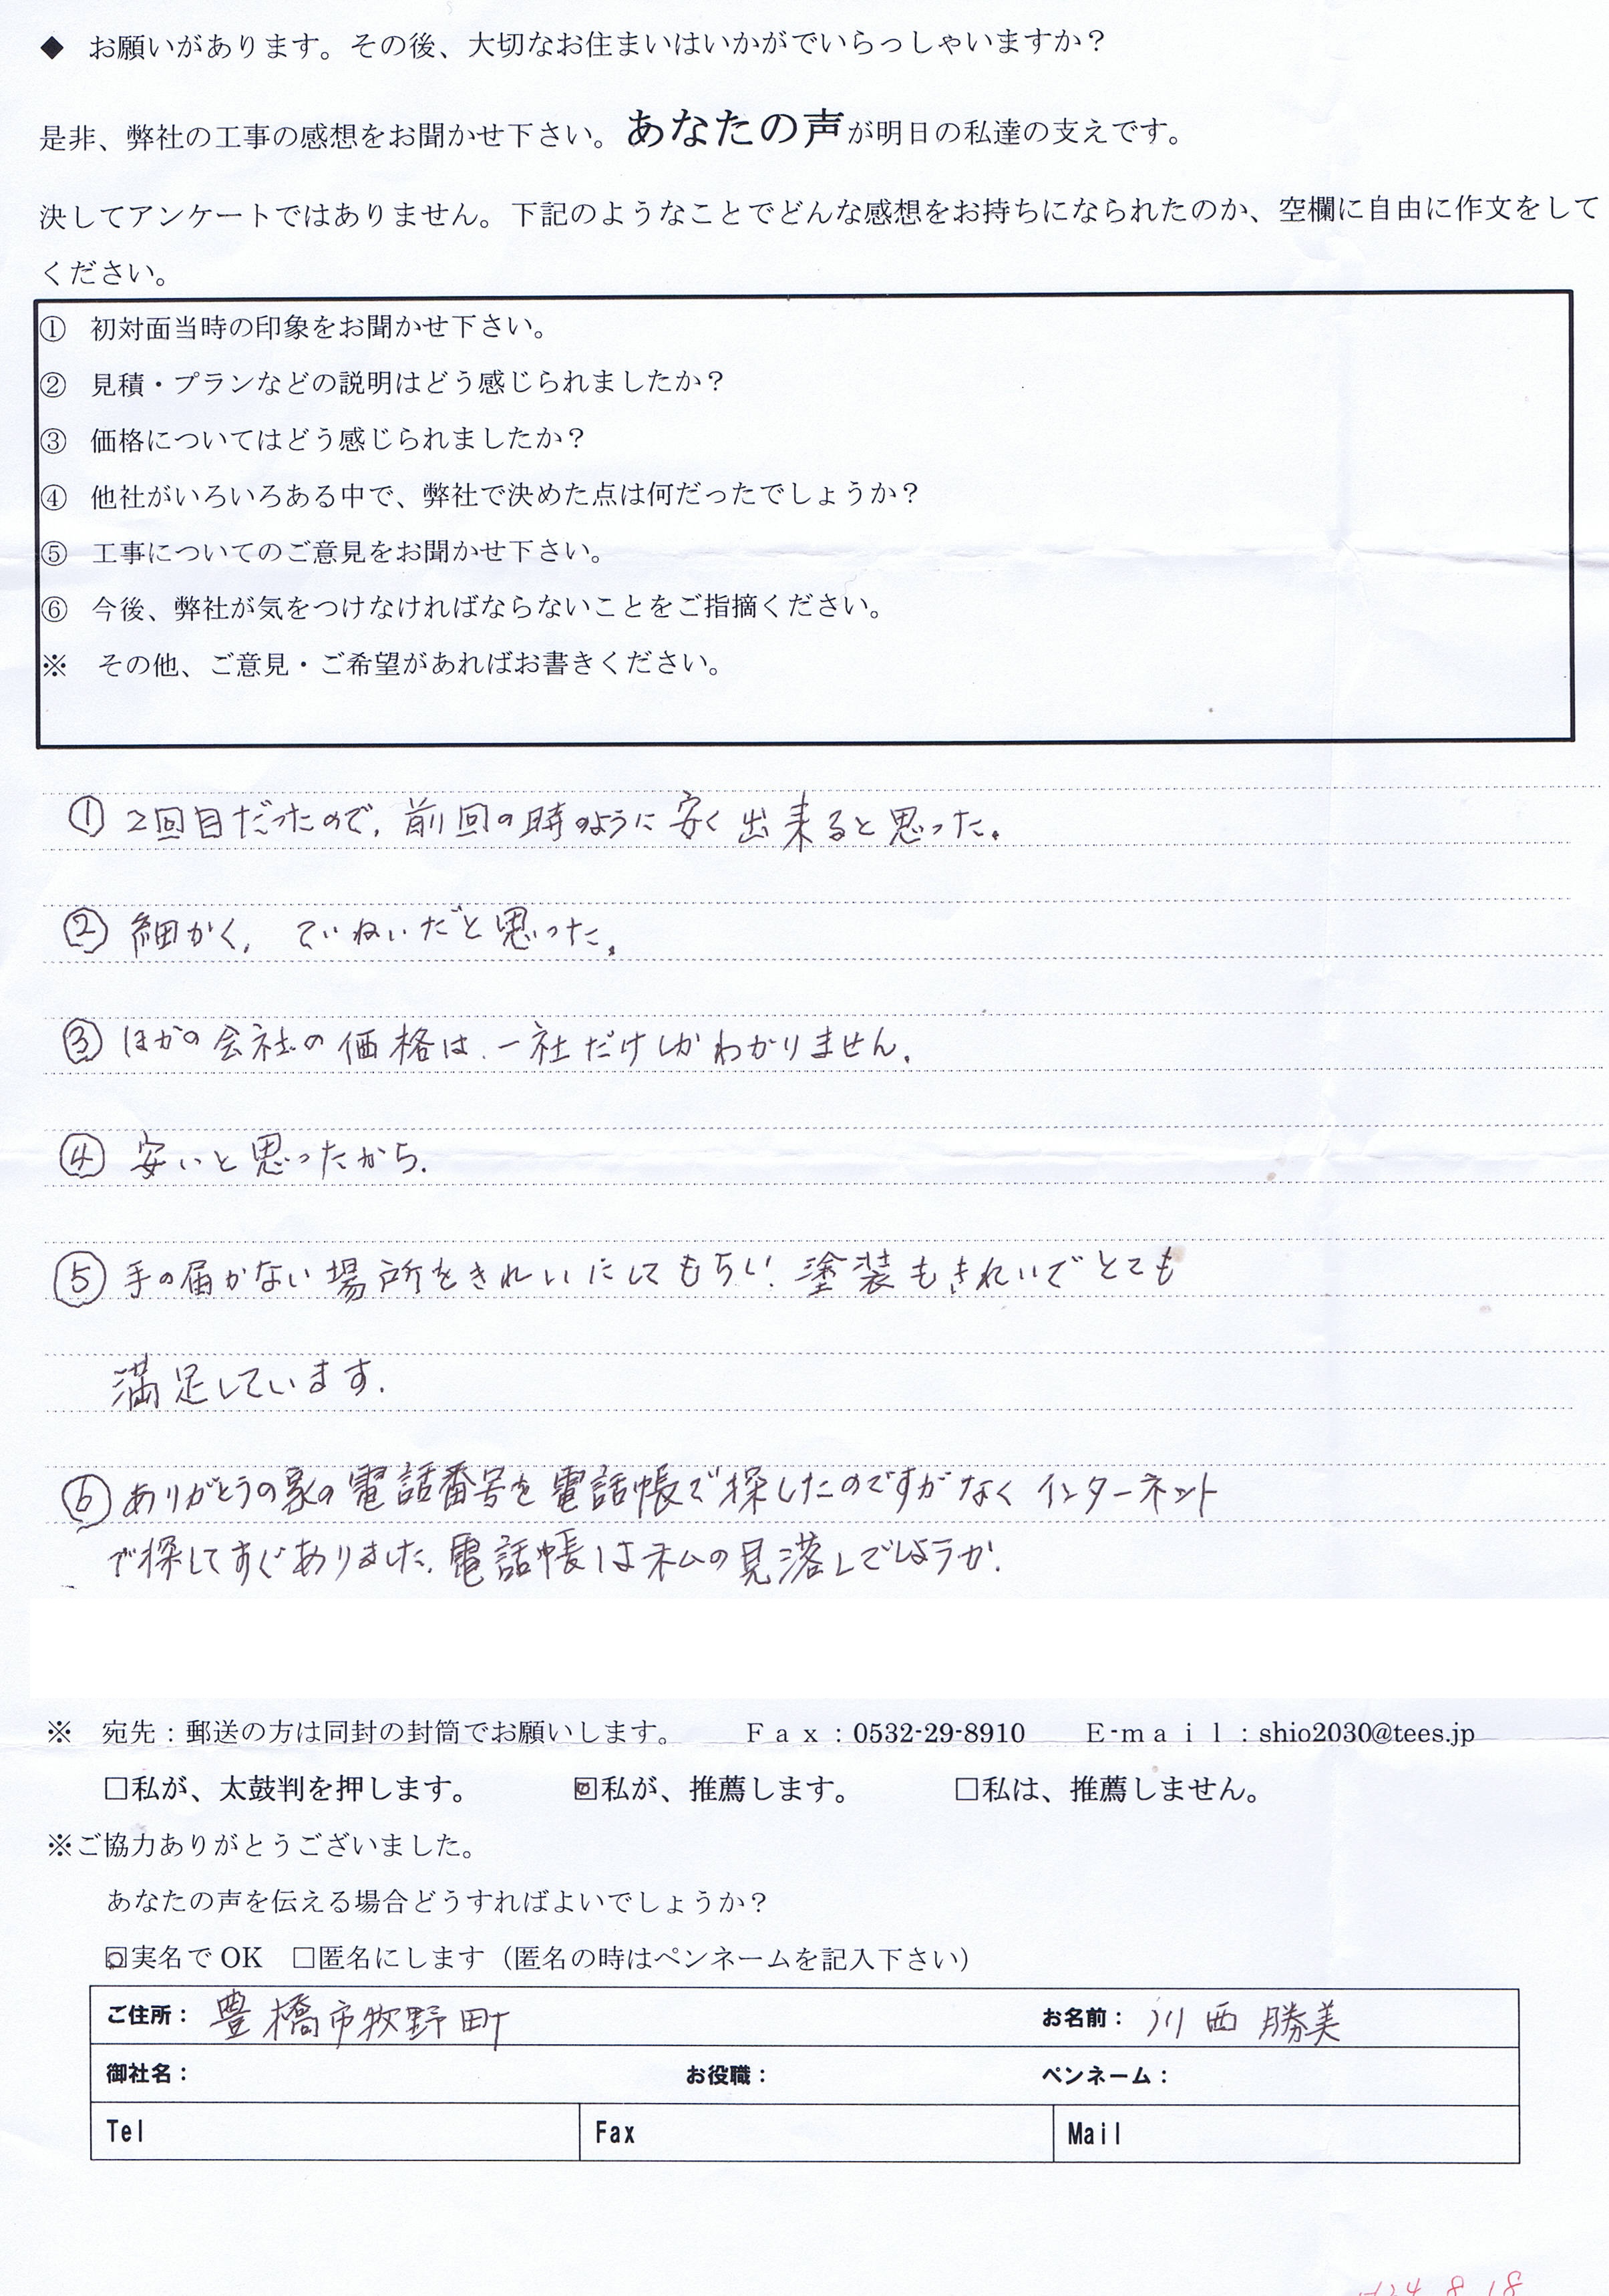 ◆ お願いがあります。その後、大切なお住まいはいかがでいらっしゃいますか？
是非、弊社の工事の感想をお聞かせ下さい。あなたの声が明日の私達の支えです。
決してアンケートではありません。下記のようなことでどんな感想をお持ちになられたのか、空欄に自由に作文をして
ください。
① 初対面当時の印象をお聞かせ下さい。
② 見積・プランなどの説明はどう感じられましたか？
③ 価格についてはどう感じられましたか？
④ 他社がいろいろある中で、弊社で決めた点は何だったでしょうか？
⑤ 工事についてのご意見をお聞かせ下さい。
⑥ 今後、弊社が気をつけなければならないことをご指摘ください。
※ その他、ご意見・ご希望があればお書きください。
① 2回目だったので、前回の時のように安く出来ると思った。
② 細かく、ていねいだと思った。
③ ほかの会社の価格は、一社だけしかわかりません。
④ 安いと思ったから。
⑤ 手の届かない場所をきれいにしてもらい、塗装もきれいでとても
満足しています。
⑥ ありがとうの家の電話番号を電話帳で探したのですがなくインターネット
で探してすぐありました。電話帳は私の見落しでしょうか。
※ 宛先：郵送の方は同封の封筒でお願いします。 Ｆａｘ：0532-29-8910 Ｅ-ｍａｉｌ：shio2030@tees.jp
□私が、太鼓判を押します。 ☑私が、推薦します。 □私は、推薦しません。
※ご協力ありがとうございました。
あなたの声を伝える場合どうすればよいでしょうか？
☑実名でOK □匿名にします（匿名の時はペンネームを記入下さい）
ご住所： 豊橋市牧野町 お名前： 川西勝美
御社名： お役職： ペンネーム：
Tel Fax Mail
H24.8.18